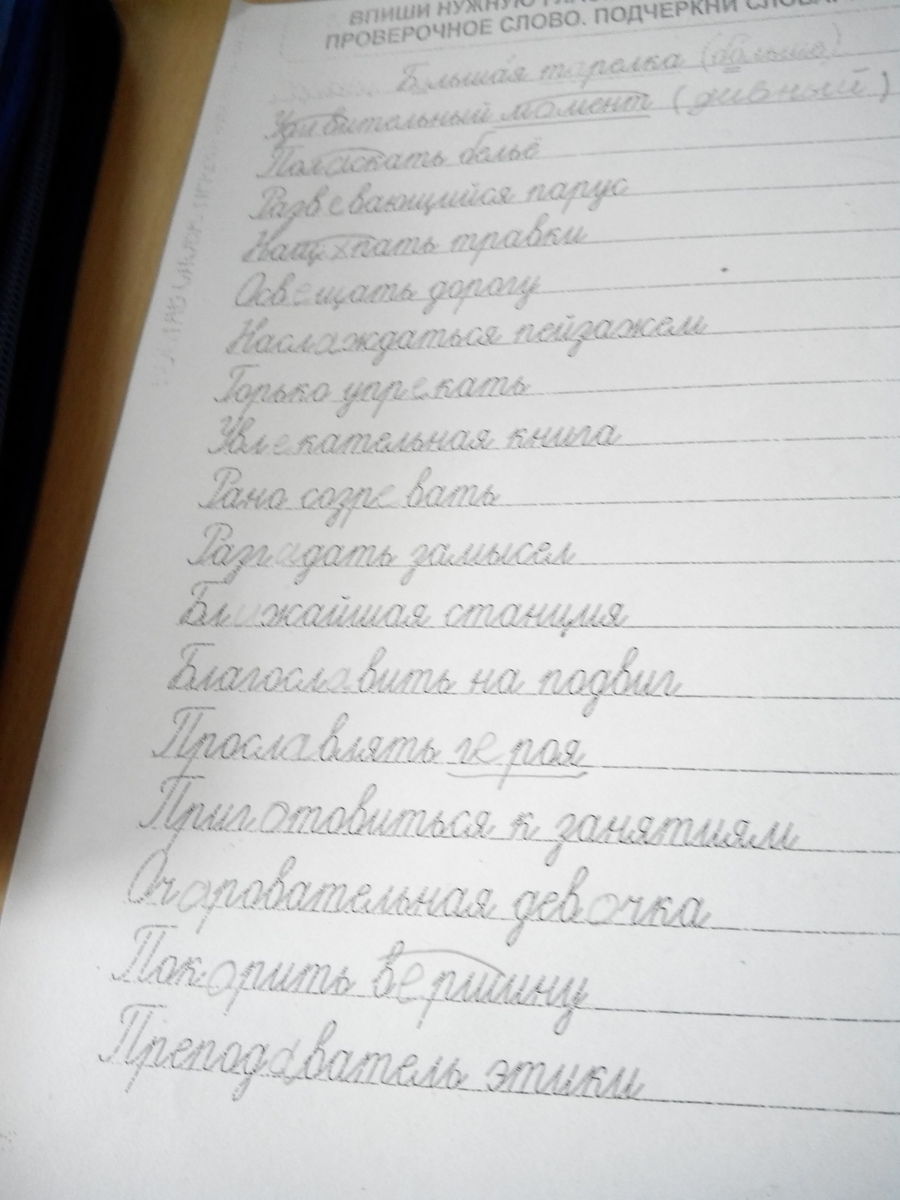 ВПИШИ НУЖНУЮ
ПРОВЕРОЧНОЕ СЛОВО. ПОДЧЕРКНИ
Большая тарелка (больше)
Удивительный момент (дивный)
Полоскать бельё
Развевающийся парус
Нащупать травки
Освещать дорогу
Наслаждаться пейзажем
Горько упрекать
Увлекательная книга
Рано созревать
Разгадать замысел
Ближайшая станция
Благославить на подвиг
Прославлять героя
Приготовиться к занятиям
Очаровательная девочка
Покорить вершину
Преподаватель этики